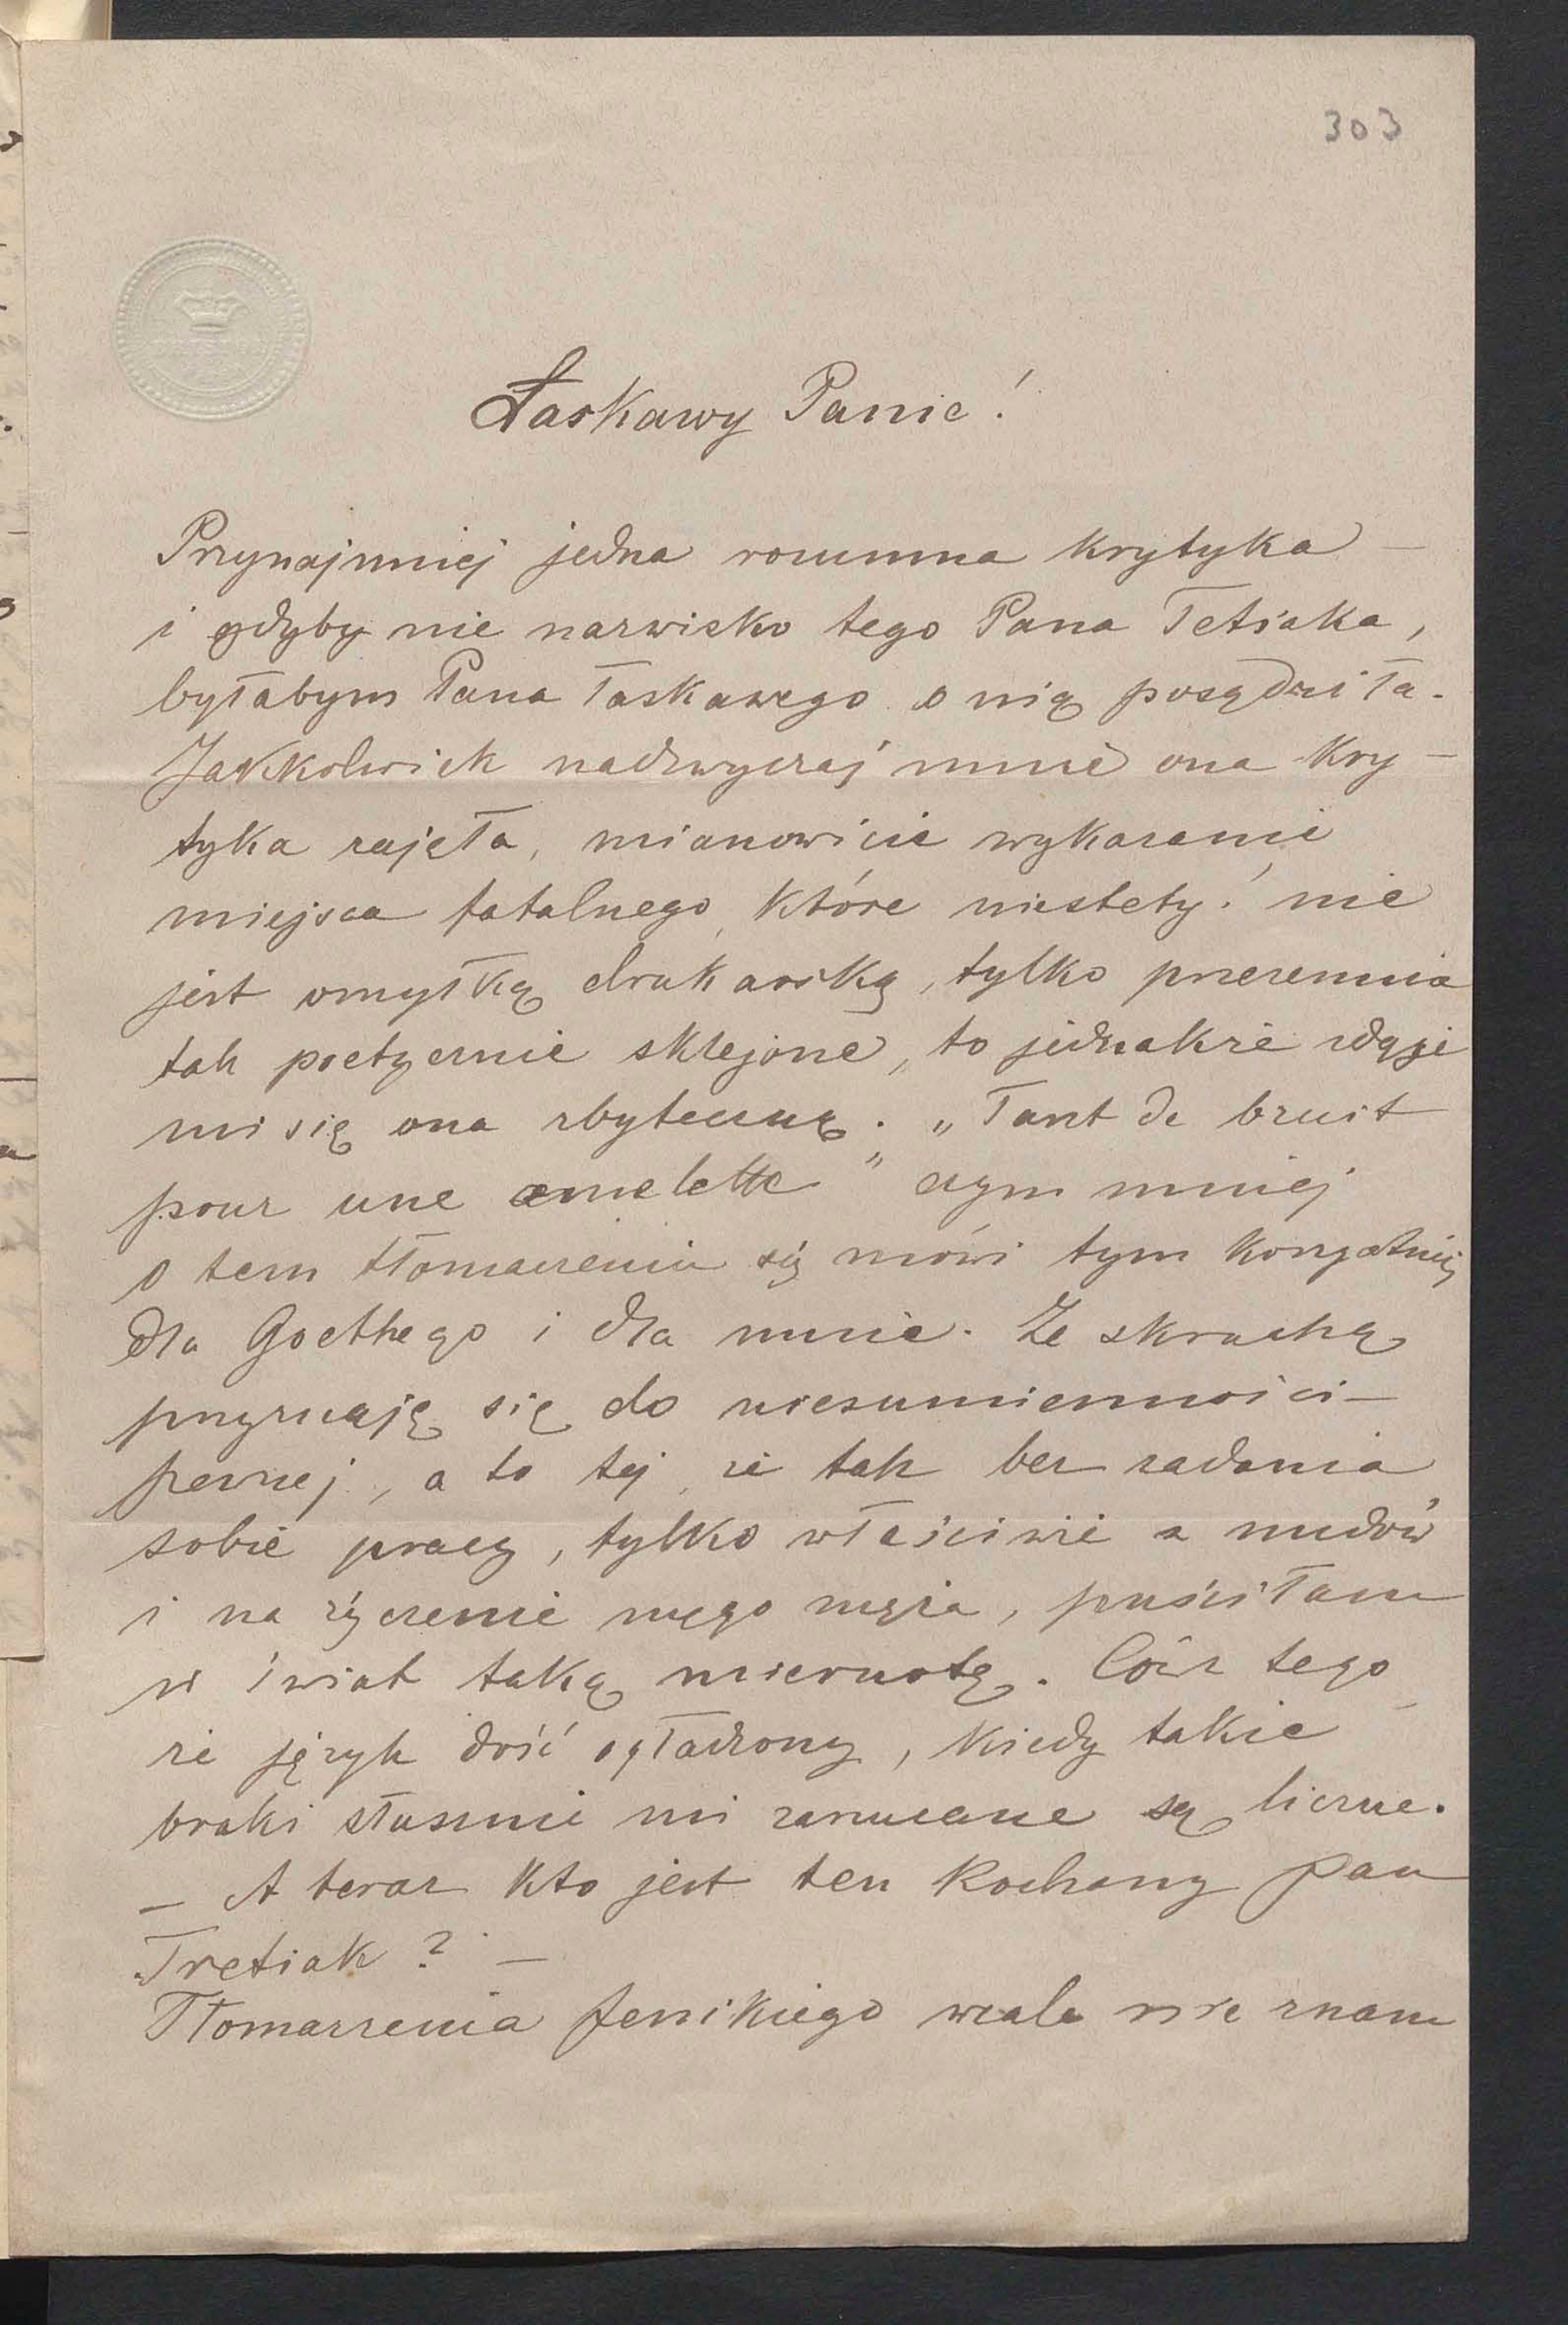 303
Łaskawy Panie!
Przynajmniej jedna rozumna krytyka –
i gdyby nie nazwisko tego Pana Tetiaka,
byłabym Pana łaskawego o nią posądziła.
Jakkolwiek nadzwyczaj mnie ona kry-
tyka zajęła, mianowicie wykazanie
miejsca fatalnego, które niestety! nie
jest omyłką drukarską, tylko przezemnie
tak poetycznie sklejone, to jednakże zdaje
mi się ona zbyteczną. „Tant de bruit
pour une omelette” czym mniej
o tem tłomaczeniu się mówi tym korzystniej
dla Goethego i dla mnie. Ze skruchą
przyznaję się do niesumienności –
pewnej, a to tej, że tak bez zadania
sobie pracy, tylko właściwie z nudów
i na życzenie mego męża, puściłam
w świat taką miernotę. Cóż z tego
że język dość ogładzony, kiedy takie
braki słusznie mi zarzucane są liczne.
– A teraz kto jest ten kochany pan
Tretiak? –
Tłomaczenia Jenikiego wcale nie znam